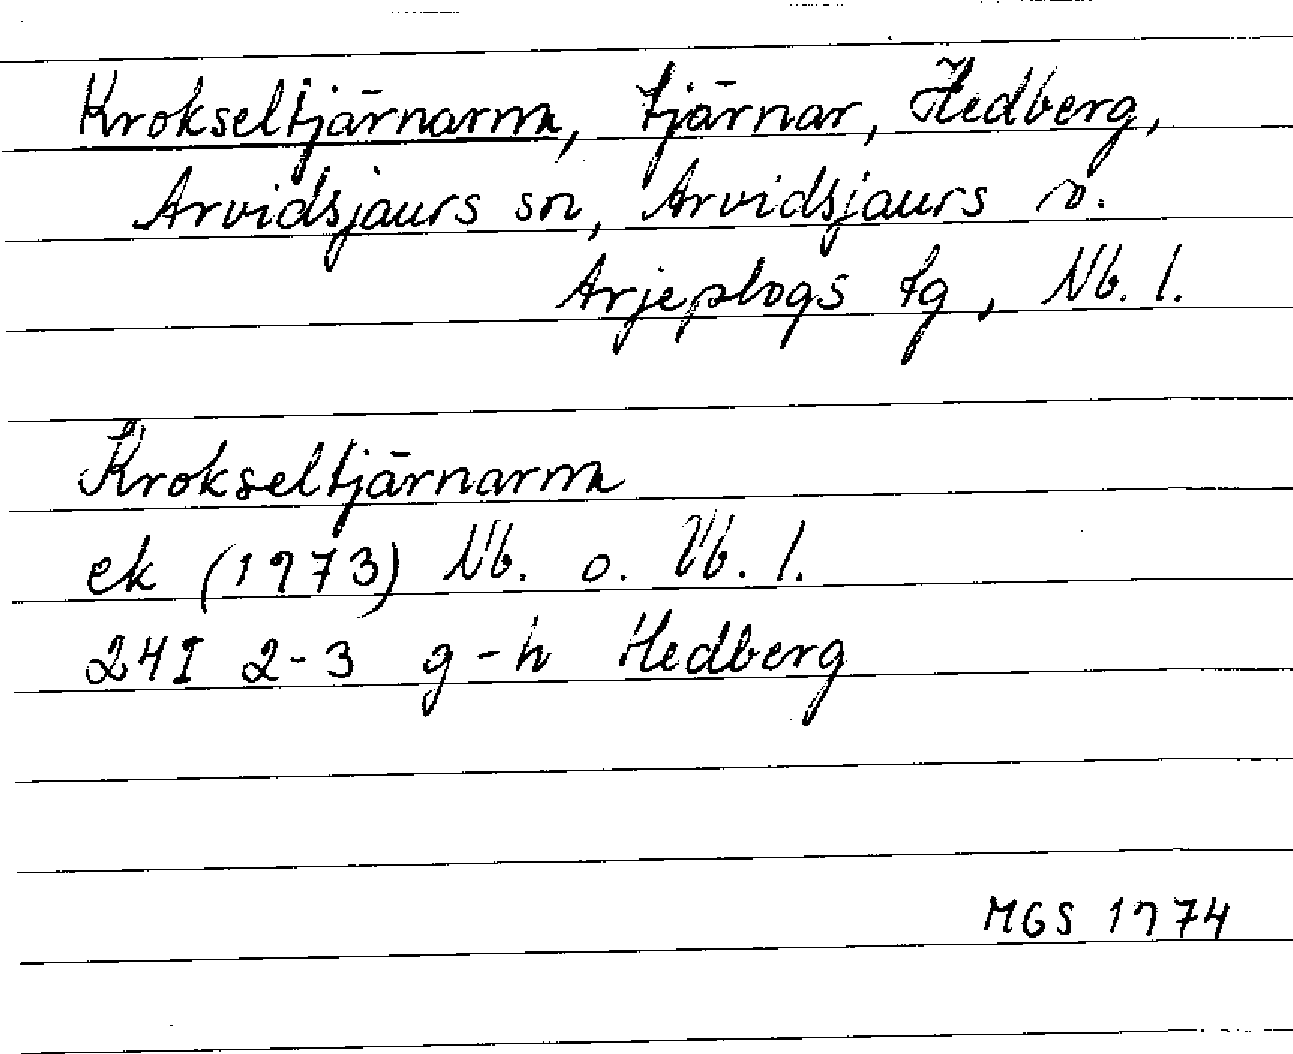 Krokseltjärnarna, tjärnar, Hedberg,
Arvidsjaurs sn, Arvidsjaurs o.
Arjeplogs tg, Nb. l.
Krokseltjärnarna
ek (1973) Nb. o. Vb. l.
24I 2-3 g-h Hedberg
MGS 1974